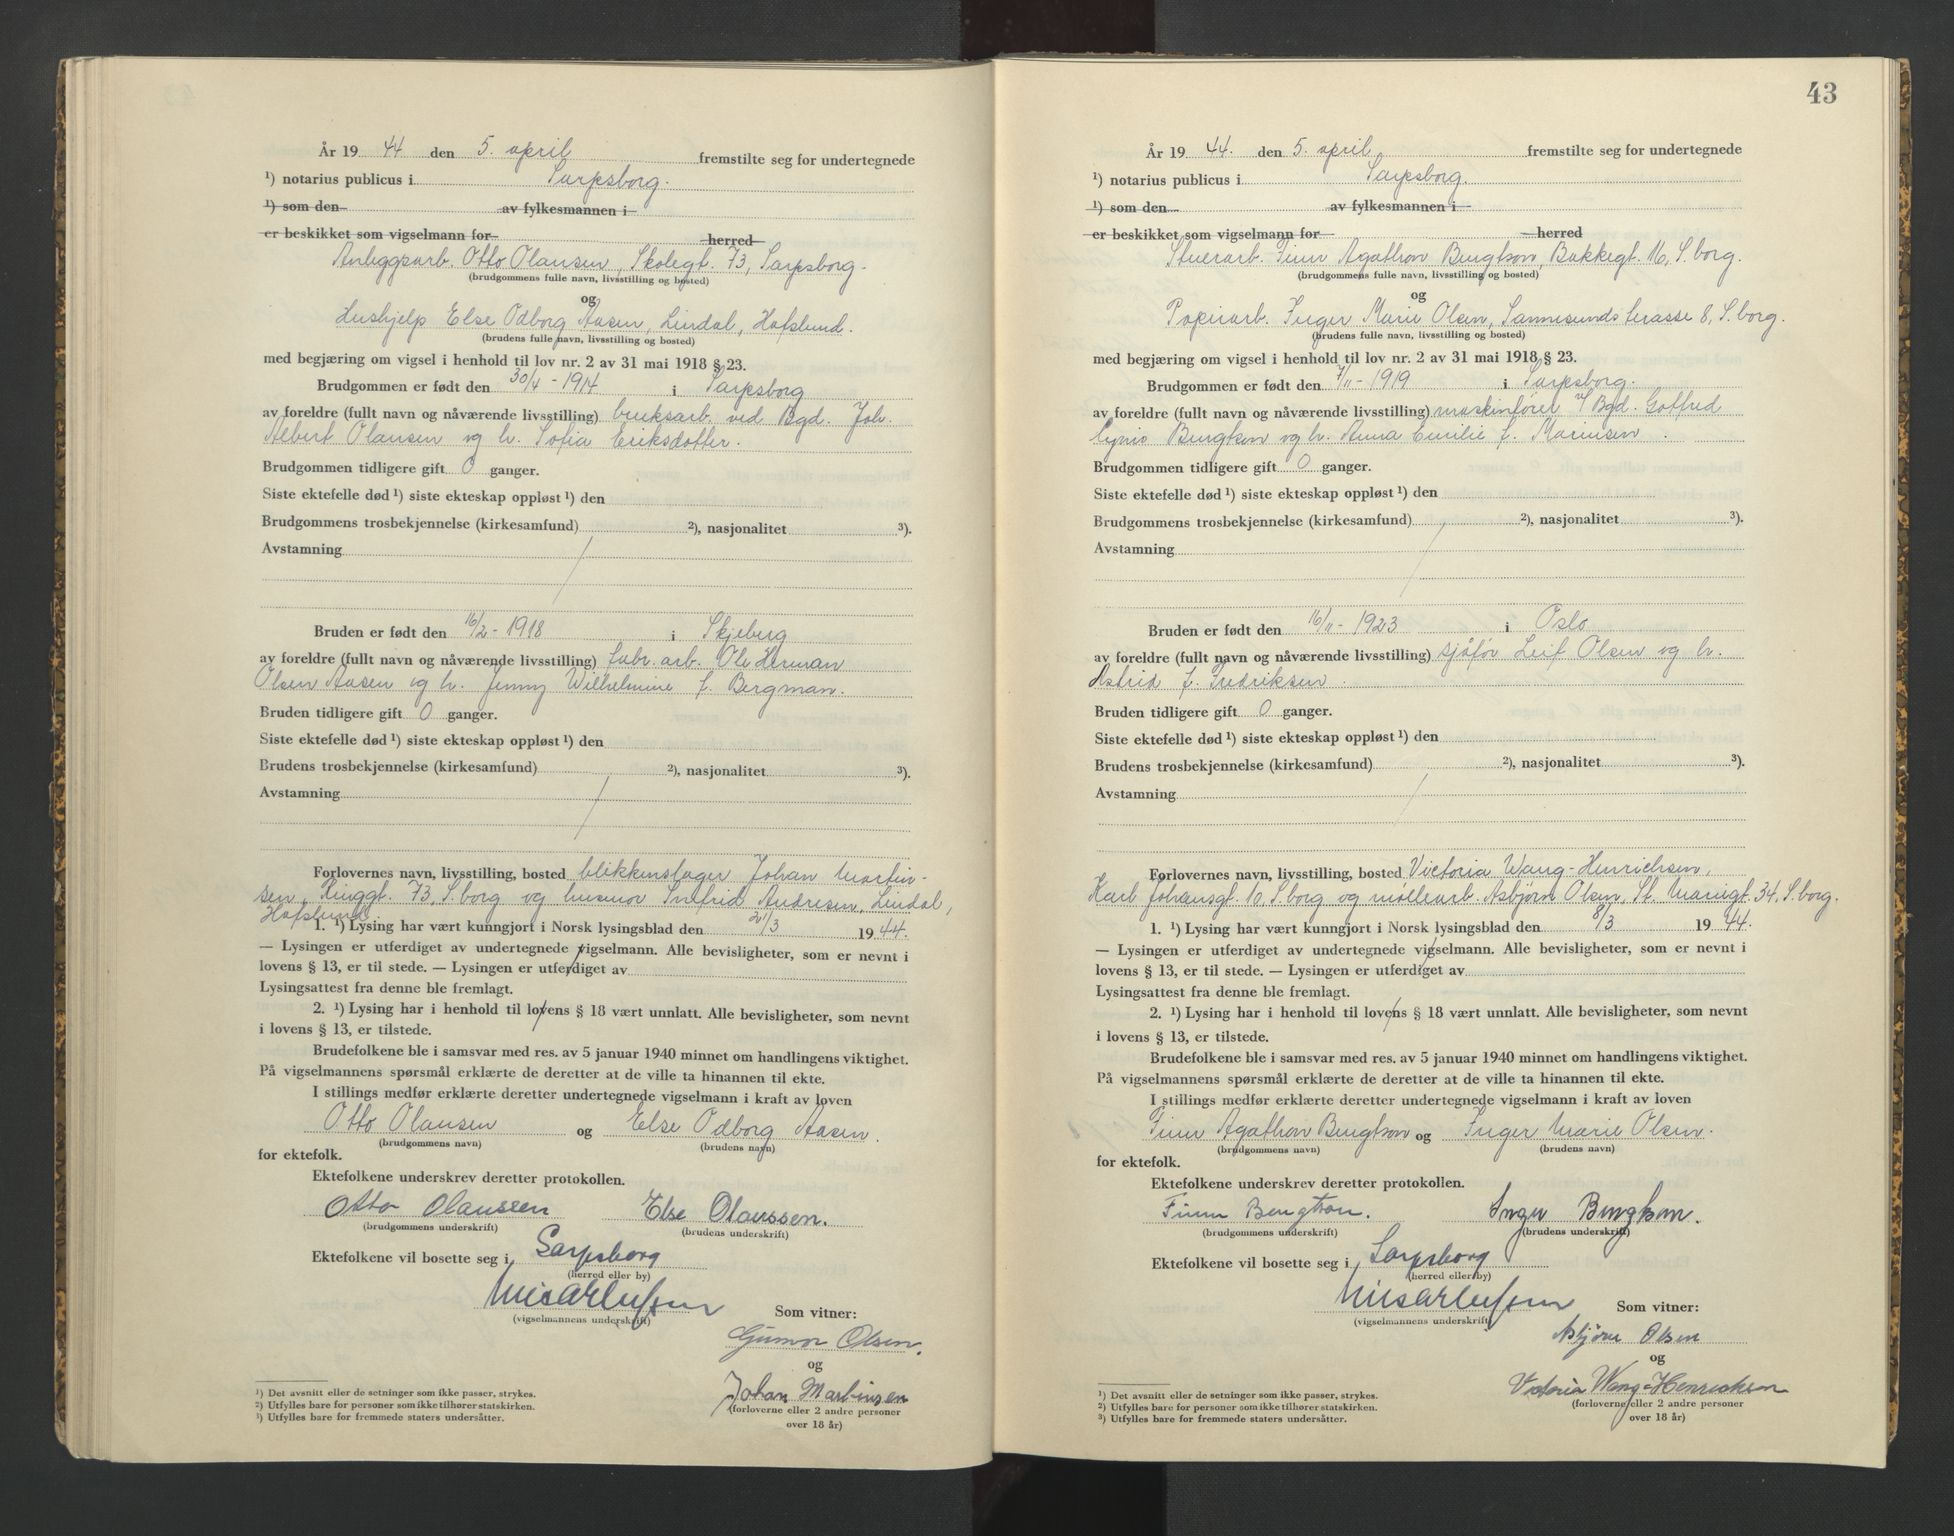 År 19 44 den 5. april fremstilte seg for undertegnede
¹) notarius publicus i Sarpsborg.
¹) som den av fylkesmannen i
er beskikket som vigselmann for herred
Anleggsarb. Otto Olausen, Skolegt. 73, Sarpsborg.
(brudgommens fulle navn, livsstilling og bosted)
og
Hushjelp Else Odborg Aasen, Lindal, Hafslund.
(brudens fulle navn, livsstilling og bosted)
med begjæring om vigsel i henhold til lov nr. 2 av 31 mai 1918 § 23.
Brudgommen er født den 30/4 - 1914 i Sarpsborg
av foreldre (fullt navn og nåværende livsstilling) bruksarb. ved Bgd. Joh.
Albert Olausen og h. Sofia Eriksdotter.
Brudgommen tidligere gift 0 ganger.
Siste ektefelle død ¹) siste ekteskap oppløst ¹) den
Brudgommens trosbekjennelse (kirkesamfund) ²), nasjonalitet ³).
Avstamning
Bruden er født den 16/2 - 1918 i Skjeberg
av foreldre (fullt navn og nåværende livsstilling) fabr. arb. Ole Herman
Olsen Aasen og h. Jenny Wilhelmine f. Bergman.
Bruden tidligere gift 0 ganger.
Siste ektefelle død ¹) siste ekteskap oppløst ¹) den
Brudens trosbekjennelse (kirkesamfund) ²), nasjonalitet ³).
Avstamning
Forlovernes navn, livsstilling, bosted blikkenslager Johan Martin-
sen, Ringgt. 73, S.borg og husmor Andresen, Lindal,
Hafslund.
1. ¹) Lysing har vært kunngjort i Norsk lysingsblad den 21/3 19 44.
— Lysingen er utferdiget av undertegnede vigselmann. Alle bevisligheter, som er nevnt i
lovens § 13, er til stede. — Lysingen er utferdiget av
Lysingsattest fra denne ble fremlagt.
2. ¹) Lysing har i henhold til lovens § 18 vært unnlatt. Alle bevisligheter, som nevnt
i lovens § 13, er tilstede.
Brudefolkene ble i samsvar med res. av 5 januar 1940 minnet om handlingens viktighet.
På vigselmannens spørsmål erklærte de deretter at de ville ta hinannen til ekte.
I stillings medfør erklærte deretter undertegnede vigselmann i kraft av loven
Otto Olausen og Else Odborg Aasen.
(brudgommens navn) (brudens navn)
for ektefolk.
Ektefolkene underskrev deretter protokollen.
Otto Olaussen Else Olaussen.
(brudgommens underskrift) (brudens underskrift)
Ektefolkene vil bosette seg i Sarpsborg
(herred eller by)
Som vitner:
(vigselmannens underskrift)
Gunvor Olsen.
og
Johan Martinsen
(forloverne eller 2 andre personer
over 18 år)
¹) Det avsnitt eller de setninger som ikke passer, strykes.
²) Utfylles bare for personer som ikke tilhører statskirken.
³) Utfylles bare for fremmede staters undersåtter.
43
År 19 44. den 5. april fremstilte seg for undertegnede
¹) notarius publicus i Sarpsborg.
¹) som den av fylkesmannen i
er beskikket som vigselmann for herred
Stuerarb. Finn Agathon Bengtson, Bakkegt. 16, S.borg.
(brudgommens fulle navn, livsstilling og bosted)
og
Papirarb. Inger Marie Olsen, Sannesunds terasse 8, S.borg.
(brudens fulle navn, livsstilling og bosted)
med begjæring om vigsel i henhold til lov nr. 2 av 31 mai 1918 § 23.
Brudgommen er født den 7/11 - 1919 i Sarpsborg.
av foreldre (fullt navn og nåværende livsstilling) maskinfører v/ Bgd. Gotfred
Bengtson og h. Anna Emilie f. Mariusen.
Brudgommen tidligere gift 0 ganger.
Siste ektefelle død ¹) siste ekteskap oppløst ¹) den
Brudgommens trosbekjennelse (kirkesamfund) ²), nasjonalitet ³).
Avstamning
Bruden er født den 16/11 - 1923 i Oslo
av foreldre (fullt navn og nåværende livsstilling) sjåfør Leif Olsen og h.
Astrid f. Fredriksen.
Bruden tidligere gift 0 ganger.
Siste ektefelle død ¹) siste ekteskap oppløst ¹) den
Brudens trosbekjennelse (kirkesamfund) ²), nasjonalitet ³).
Avstamning
Forlovernes navn, livsstilling, bosted Victoria Wang-Henrichsen,
Karl Johansgt. 10, S.borg og møllearb. Asbjørn Olsen, St. Mariegt. 34, S.borg.
1. ¹) Lysing har vært kunngjort i Norsk lysingsblad den 8/3 19 44.
— Lysingen er utferdiget av undertegnede vigselmann. Alle bevisligheter, som er nevnt i
lovens § 13, er til stede. — Lysingen er utferdiget av
Lysingsattest fra denne ble fremlagt.
2. ¹) Lysing har i henhold til lovens § 18 vært unnlatt. Alle bevisligheter, som nevnt
i lovens § 13, er tilstede.
Brudefolkene ble i samsvar med res. av 5 januar 1940 minnet om handlingens viktighet.
På vigselmannens spørsmål erklærte de deretter at de ville ta hinannen til ekte.
I stillings medfør erklærte deretter undertegnede vigselmann i kraft av loven
Finn Agathon Bengtson og Inger Marie Olsen.
(brudgommens navn) (brudens navn)
for ektefolk.
Ektefolkene underskrev deretter protokollen.
Finn Bengtson. Inger Bengtson.
(brudgommens underskrift) (brudens underskrift)
Ektefolkene vil bosette seg i Sarpsborg
(herred eller by)
Som vitner:
(vigselmannens underskrift)
Asbjørn Olsen
og
Victoria Wang-Henrichsen
(forloverne eller 2 andre personer
over 18 år)
¹) Det avsnitt eller de setninger som ikke passer, strykes.
²) Utfylles bare for personer som ikke tilhører statskirken.
³) Utfylles bare for fremmede staters undersåtter.